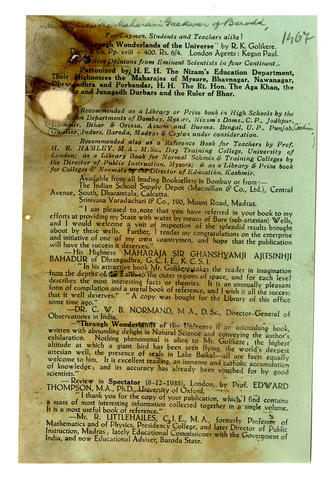 the Maharani Gaekwar of Baroda
1467
For Laymen, Students and Teachers alike!
"Through Wonderlands of the Universe" by R. K. Golikere.
Pp. xviii - 400. Rs. 6/4. London Agents: Kegan Paul.
Opinions from Eminent Scientists in four Continents.
Patronized by H. E. H. The Nizam's Education Department,
Their Highnesses the Maharajas of Mysore, Bhavnagar, Nawanagar,
Dhrangadhra and Porbandar, H. H. The Rt. Hon. The Aga Khan, the
and Junagadh Durbars and the Ruler of Bhor.
Recommended as a Library or Prize book in High Schools by the
Departments of Bombay, Mysore, Nizam's Doms, C. P., Jodhpur,
Kashmir, Bihar & Orissa, Assam and Burma. Bengal, U. P., Punjab, Cochin,
Gwalior, Indore, Baroda, Madras & Ceylon under consideration.
Recommended also as a Reference Book for Teachers by Prof.
H. R. HAMLEY, M.A., M.Sc., Day Training College, University of
London; as a Library Book for Normal Schools & Training Colleges by
the Director of Public Instruction, Mysore; & as a Library & Prize book
for Colleges & Normals by the Director of Education, Kashmir.
Available from all leading Booksellers in Bombay or from—
The Indian School Supply Depot (Macmillan & Co., Ltd.), Central
Avenue, South, Dharamtala, Calcutta.
Srinivasa Varadachari & Co., 190, Mount Road, Madras.
"I am pleased to note that you have referred in your book to my
efforts at providing my State with water by means of Bore (sub-artesian) Wells,
and I would welcome a visit of inspection of the splendid results brought
about by these wells. Further, I tender my congratulations on the enterprise
and initiative of one of my own countrymen, and hope that the publication
will have the success it deserves."
—His Highness MAHARAJA SIR GHANSHYAMJI AJITSINHJI
BAHADUR of Dhrangadhra, G. C. I. E., K. C. S. I.
"In his attractive book Mr. Golikere takes the reader in imagination
from the depths of the Earth to the outer regions of space, and for each level
describes the most interesting facts or theories. It is an unusually pleasant
form of compilation and a useful book of reference, and I wish it all the success
that it well deserves." "A copy was bought for the Library of this office
some time ago."
—DR. C. W. B. NORMAND, M. A., D. Sc., Director-General of
Observatories in India.
"Through Wonderlands of the Universe is an astonishing book,
written with abounding delight in Natural Science and conveying the author's
exhilaration. Nothing phenomenal is alien to Mr. Golikere; the highest
altitude at which a giant bird has been seen flying, the world's deepest
artesian well, the presence of seals in Lake Baikal—all are facts equally
welcome to him. It is excellent reading, an immense and catholic accumulation
of knowledge; and its accuracy has already been vouched for by good
scientists."
—Review in Spectator (8-12-1933), London, by Prof. EDWARD
THOMPSON, M.A., Ph.D., University of Oxford.
"I thank you for the copy of your publication, which I find contains
a mass of most interesting information collected together in a single volume.
It is a most useful book of reference."
—Mr. R. LITTLEHAILES, C.I.E., M.A., formerly Professor of
Mathematics and of Physics, Presidency College, and later Director of Public
Instruction, Madras, lately Educational Commissioner with the Government of
India, and now Educational Adviser, Baroda State.